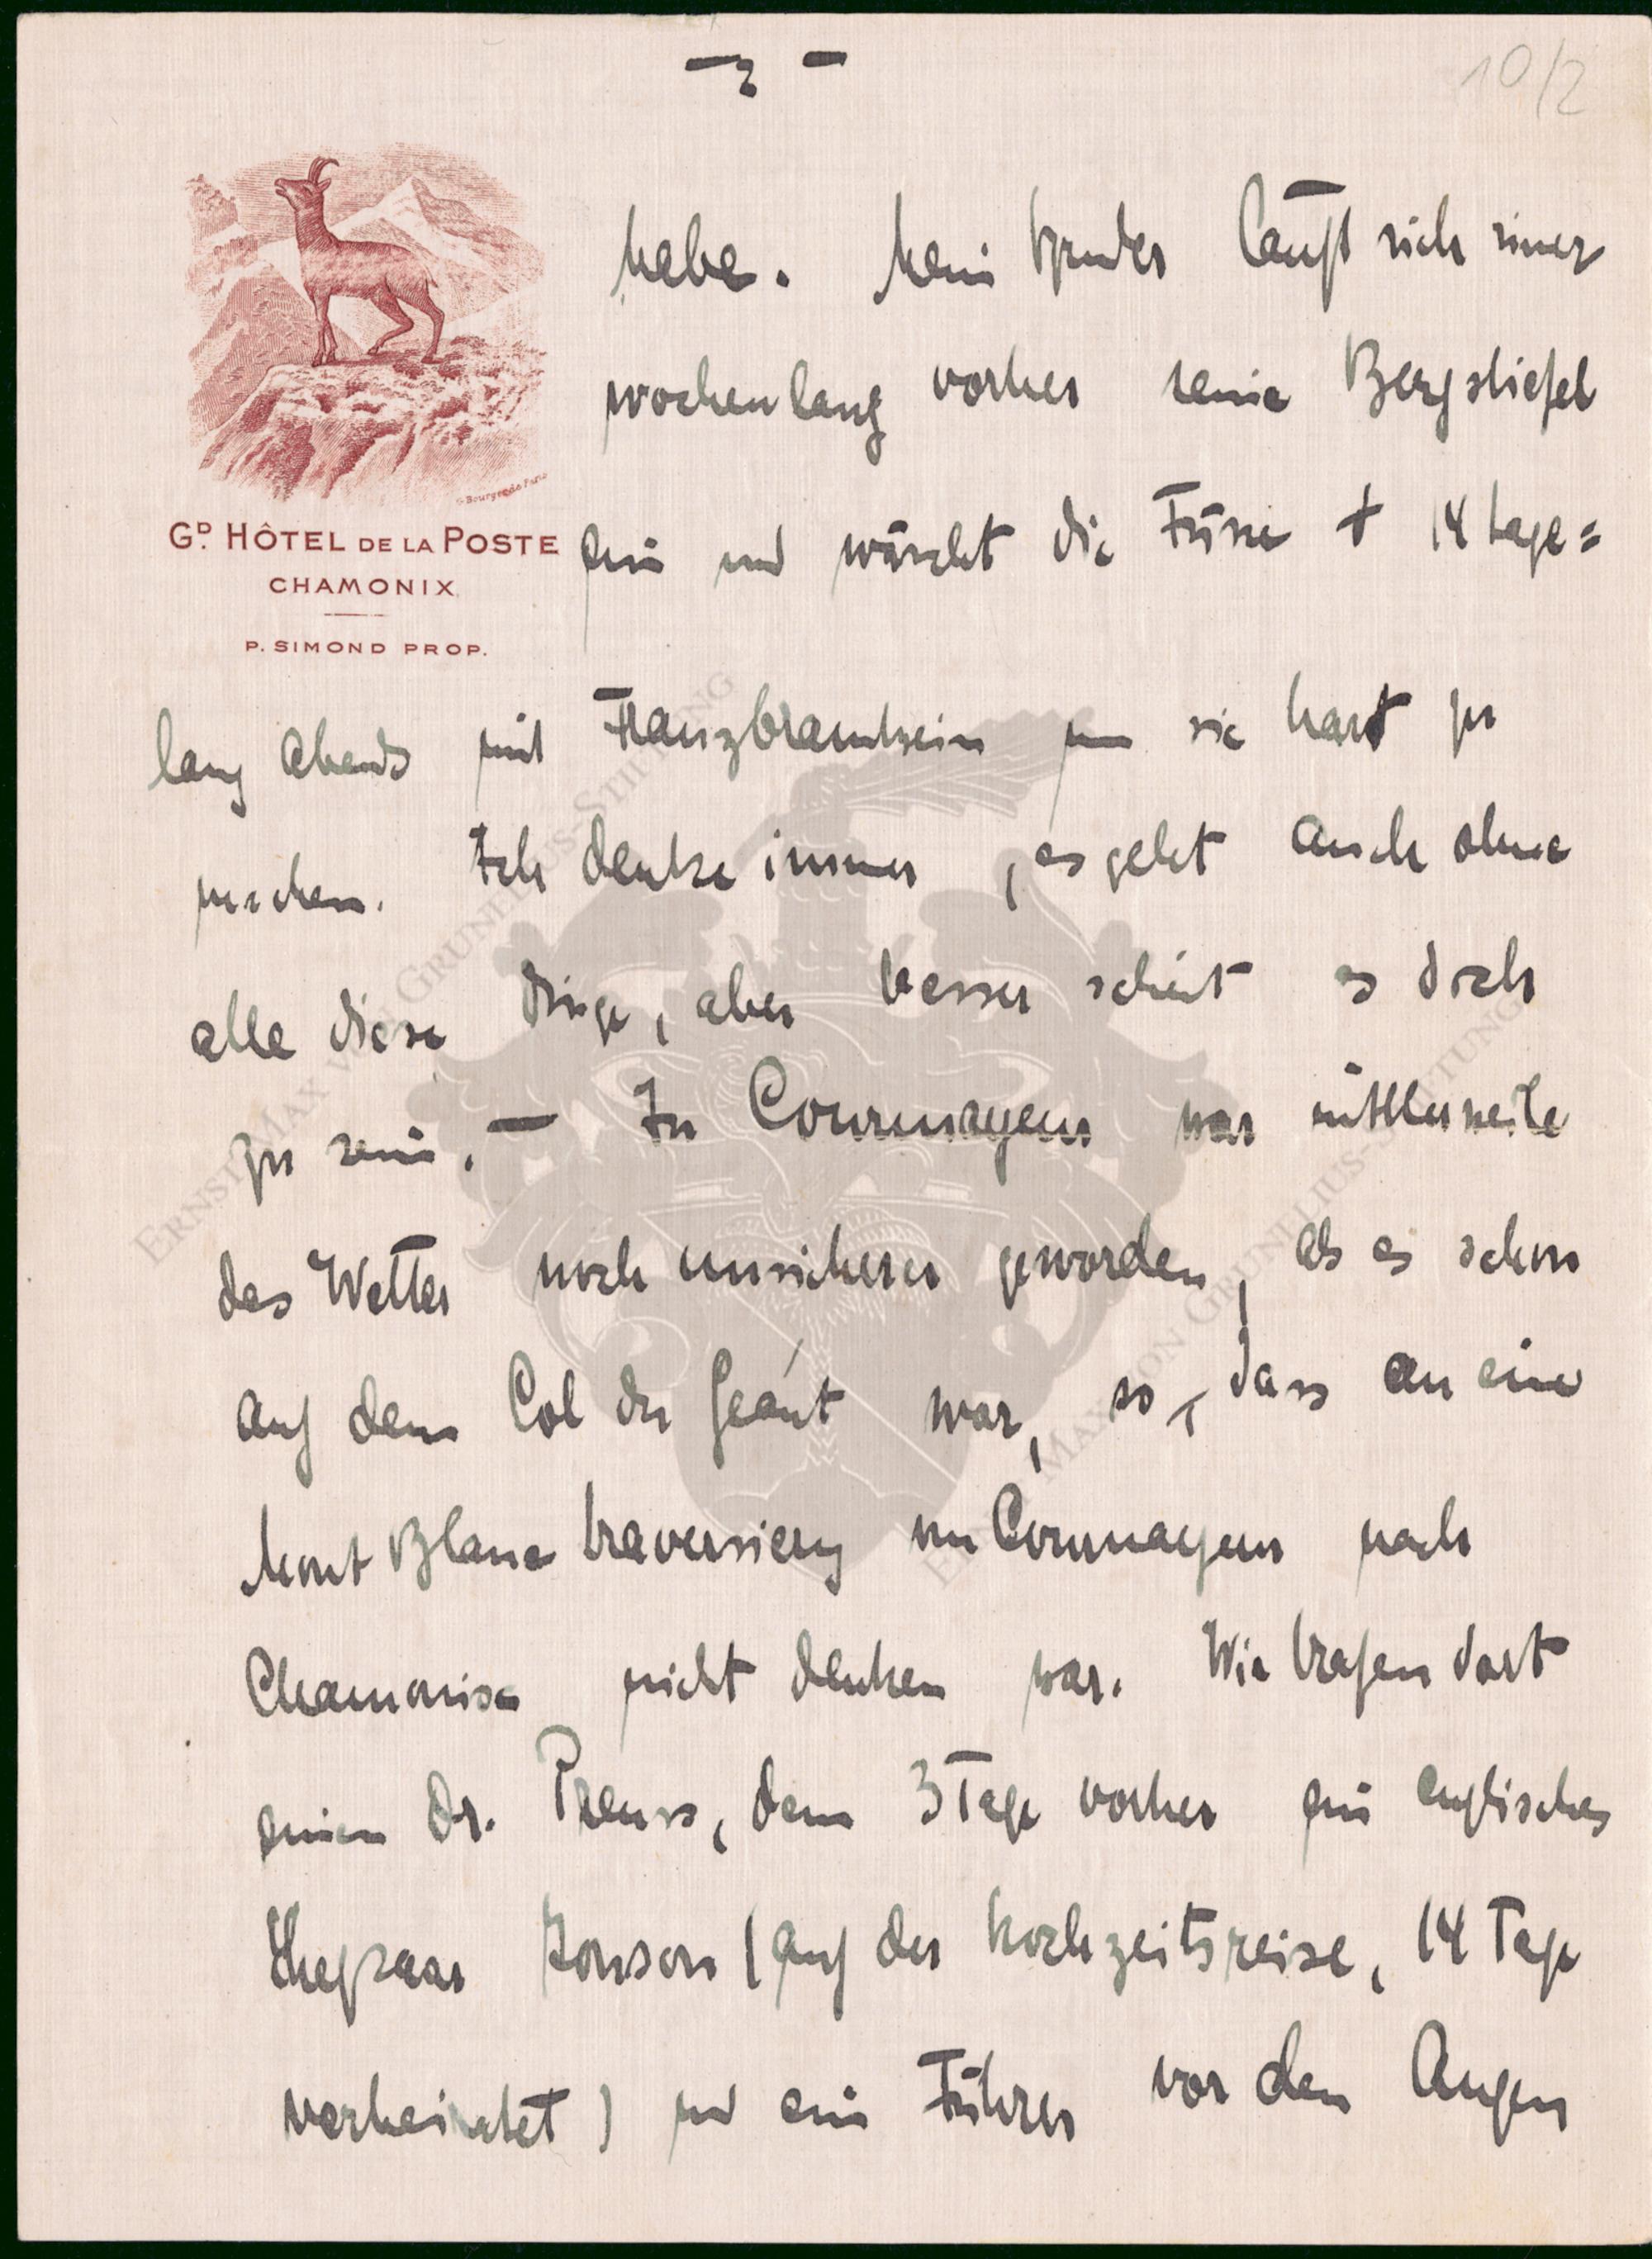 — 2 —
10/2
habe. Mein Bruder läuft sich immer
wochenlang vorher seine Bergstiefel
G. Bourgeade Paris
GD. HÔTEL DE LA POSTE
CHAMONIX
P. SIMOND PROP.
ein und wäscht die Füsse + 14 tage=
lang abends mit Franzbrantwein um sie hart zu
machen. Ich denke immer, es geht auch ohne
alle diese Dinge, aber besser scheint es doch
zu sein. — In Courmayeur war mittlerweile
das Wetter noch unsicherer geworden, als es schon
auf dem Col du Géant war, so, dass an eine
Mont Blanc traversierg von Courmayeur nach
Chamonix nicht denken war. Wir trafen dort
einen Dr. Preuss, dem 3 Tage vorher ein englisches
Ehepaar Jonson (auf der Hochzeitsreise, 14 Tage
verheiratet) und ein Führer vor den Augen
ERNST MAX VON GRUNELIUS-STIFTUNG
ERNST MAX VON GRUNELIUS-STIFTUNG